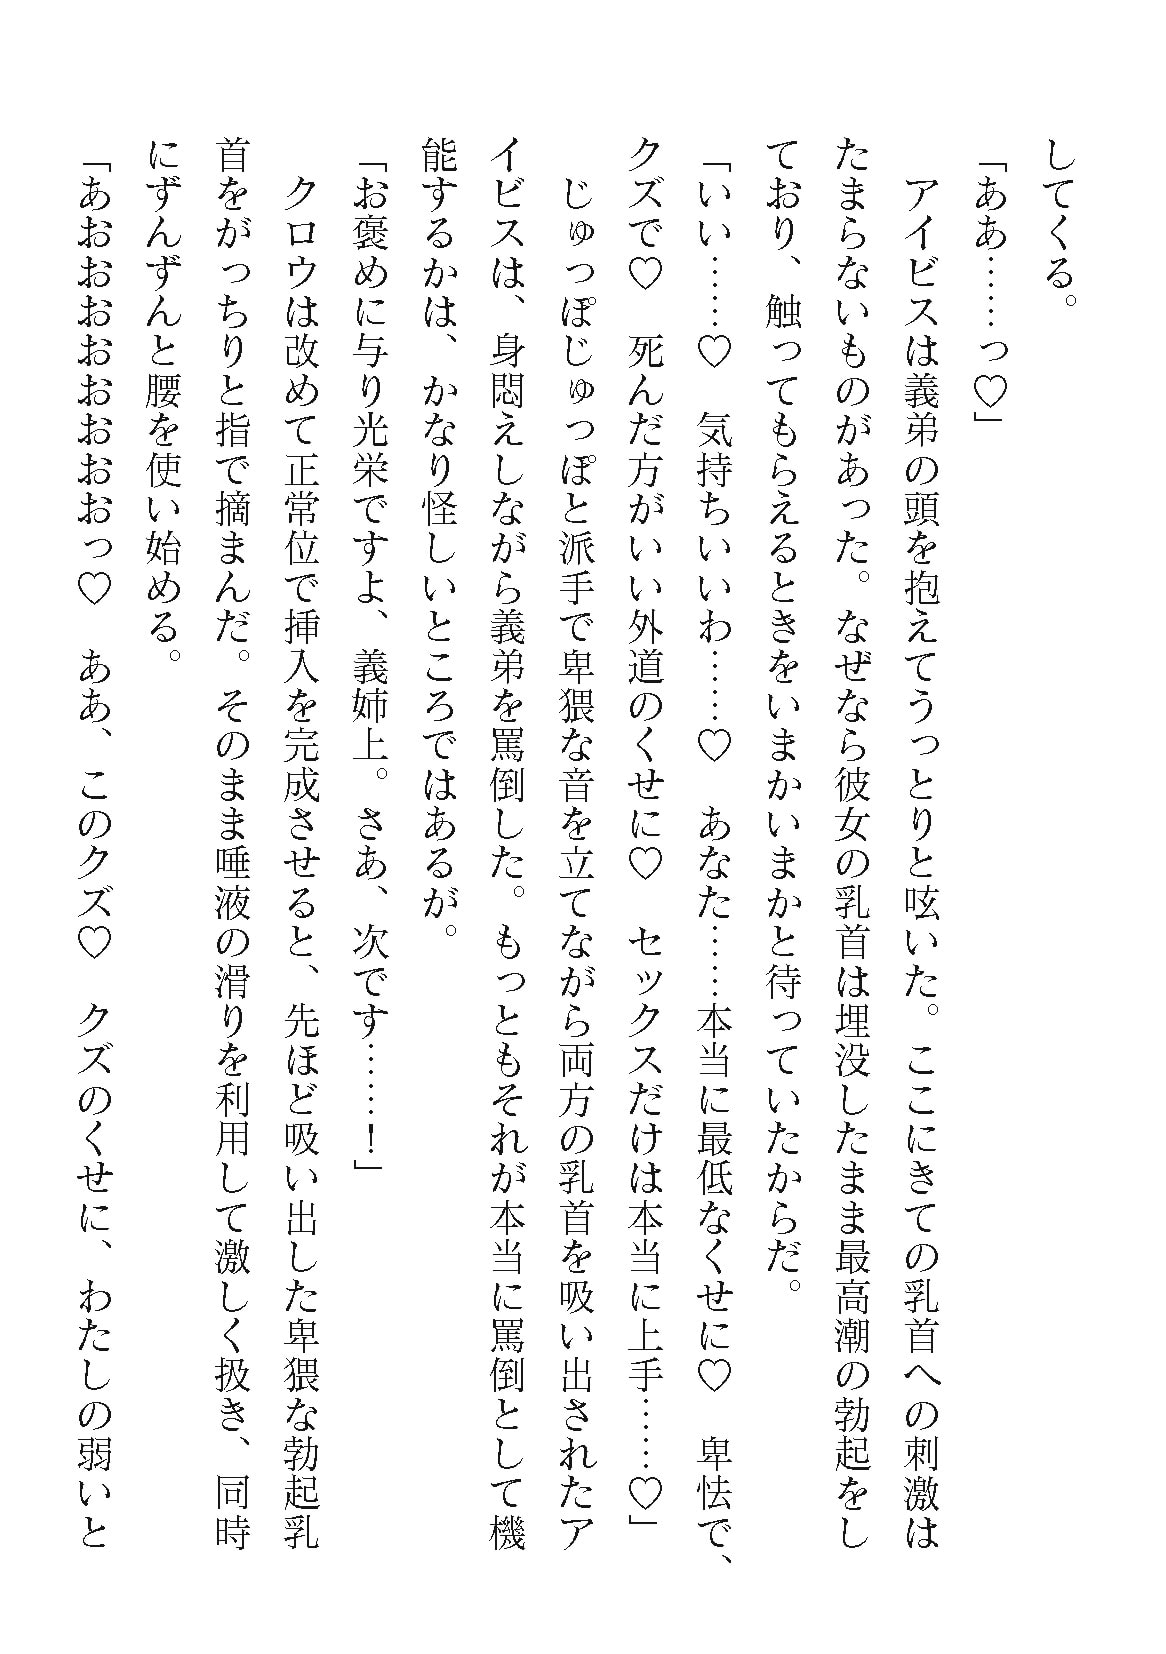 してくる。
「ああ……っ♡」
　アイビスは義弟の頭を抱えてうっとりと呟いた。ここにきての乳首への刺激は
たまらないものがあった。なぜなら彼女の乳首は埋没したまま最高潮の勃起をし
ており、触ってもらえるときをいまかいまかと待っていたからだ。
「いい……♡　気持ちいいわ……♡　あなた……本当に最低なくせに♡　卑怯で、
クズで♡　死んだ方がいい外道のくせに♡　セックスだけは本当に上手……♡」
　じゅっぽじゅっぽと派手で卑猥な音を立てながら両方の乳首を吸い出されたア
イビスは、身悶えしながら義弟を罵倒した。もっともそれが本当に罵倒として機
能するかは、かなり怪しいところではあるが。
「お褒めに与り光栄ですよ、義姉上。さあ、次です……！」
　クロウは改めて正常位で挿入を完成させると、先ほど吸い出した卑猥な勃起乳
首をがっちりと指で摘まんだ。そのまま唾液の滑りを利用して激しく扱き、同時
にずんずんと腰を使い始める。
「あおおおおおおおおっ♡　ああ、このクズ♡　クズのくせに、わたしの弱いと